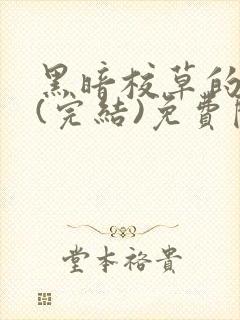 黑暗校草的
(完結)免費
堂本裕貴